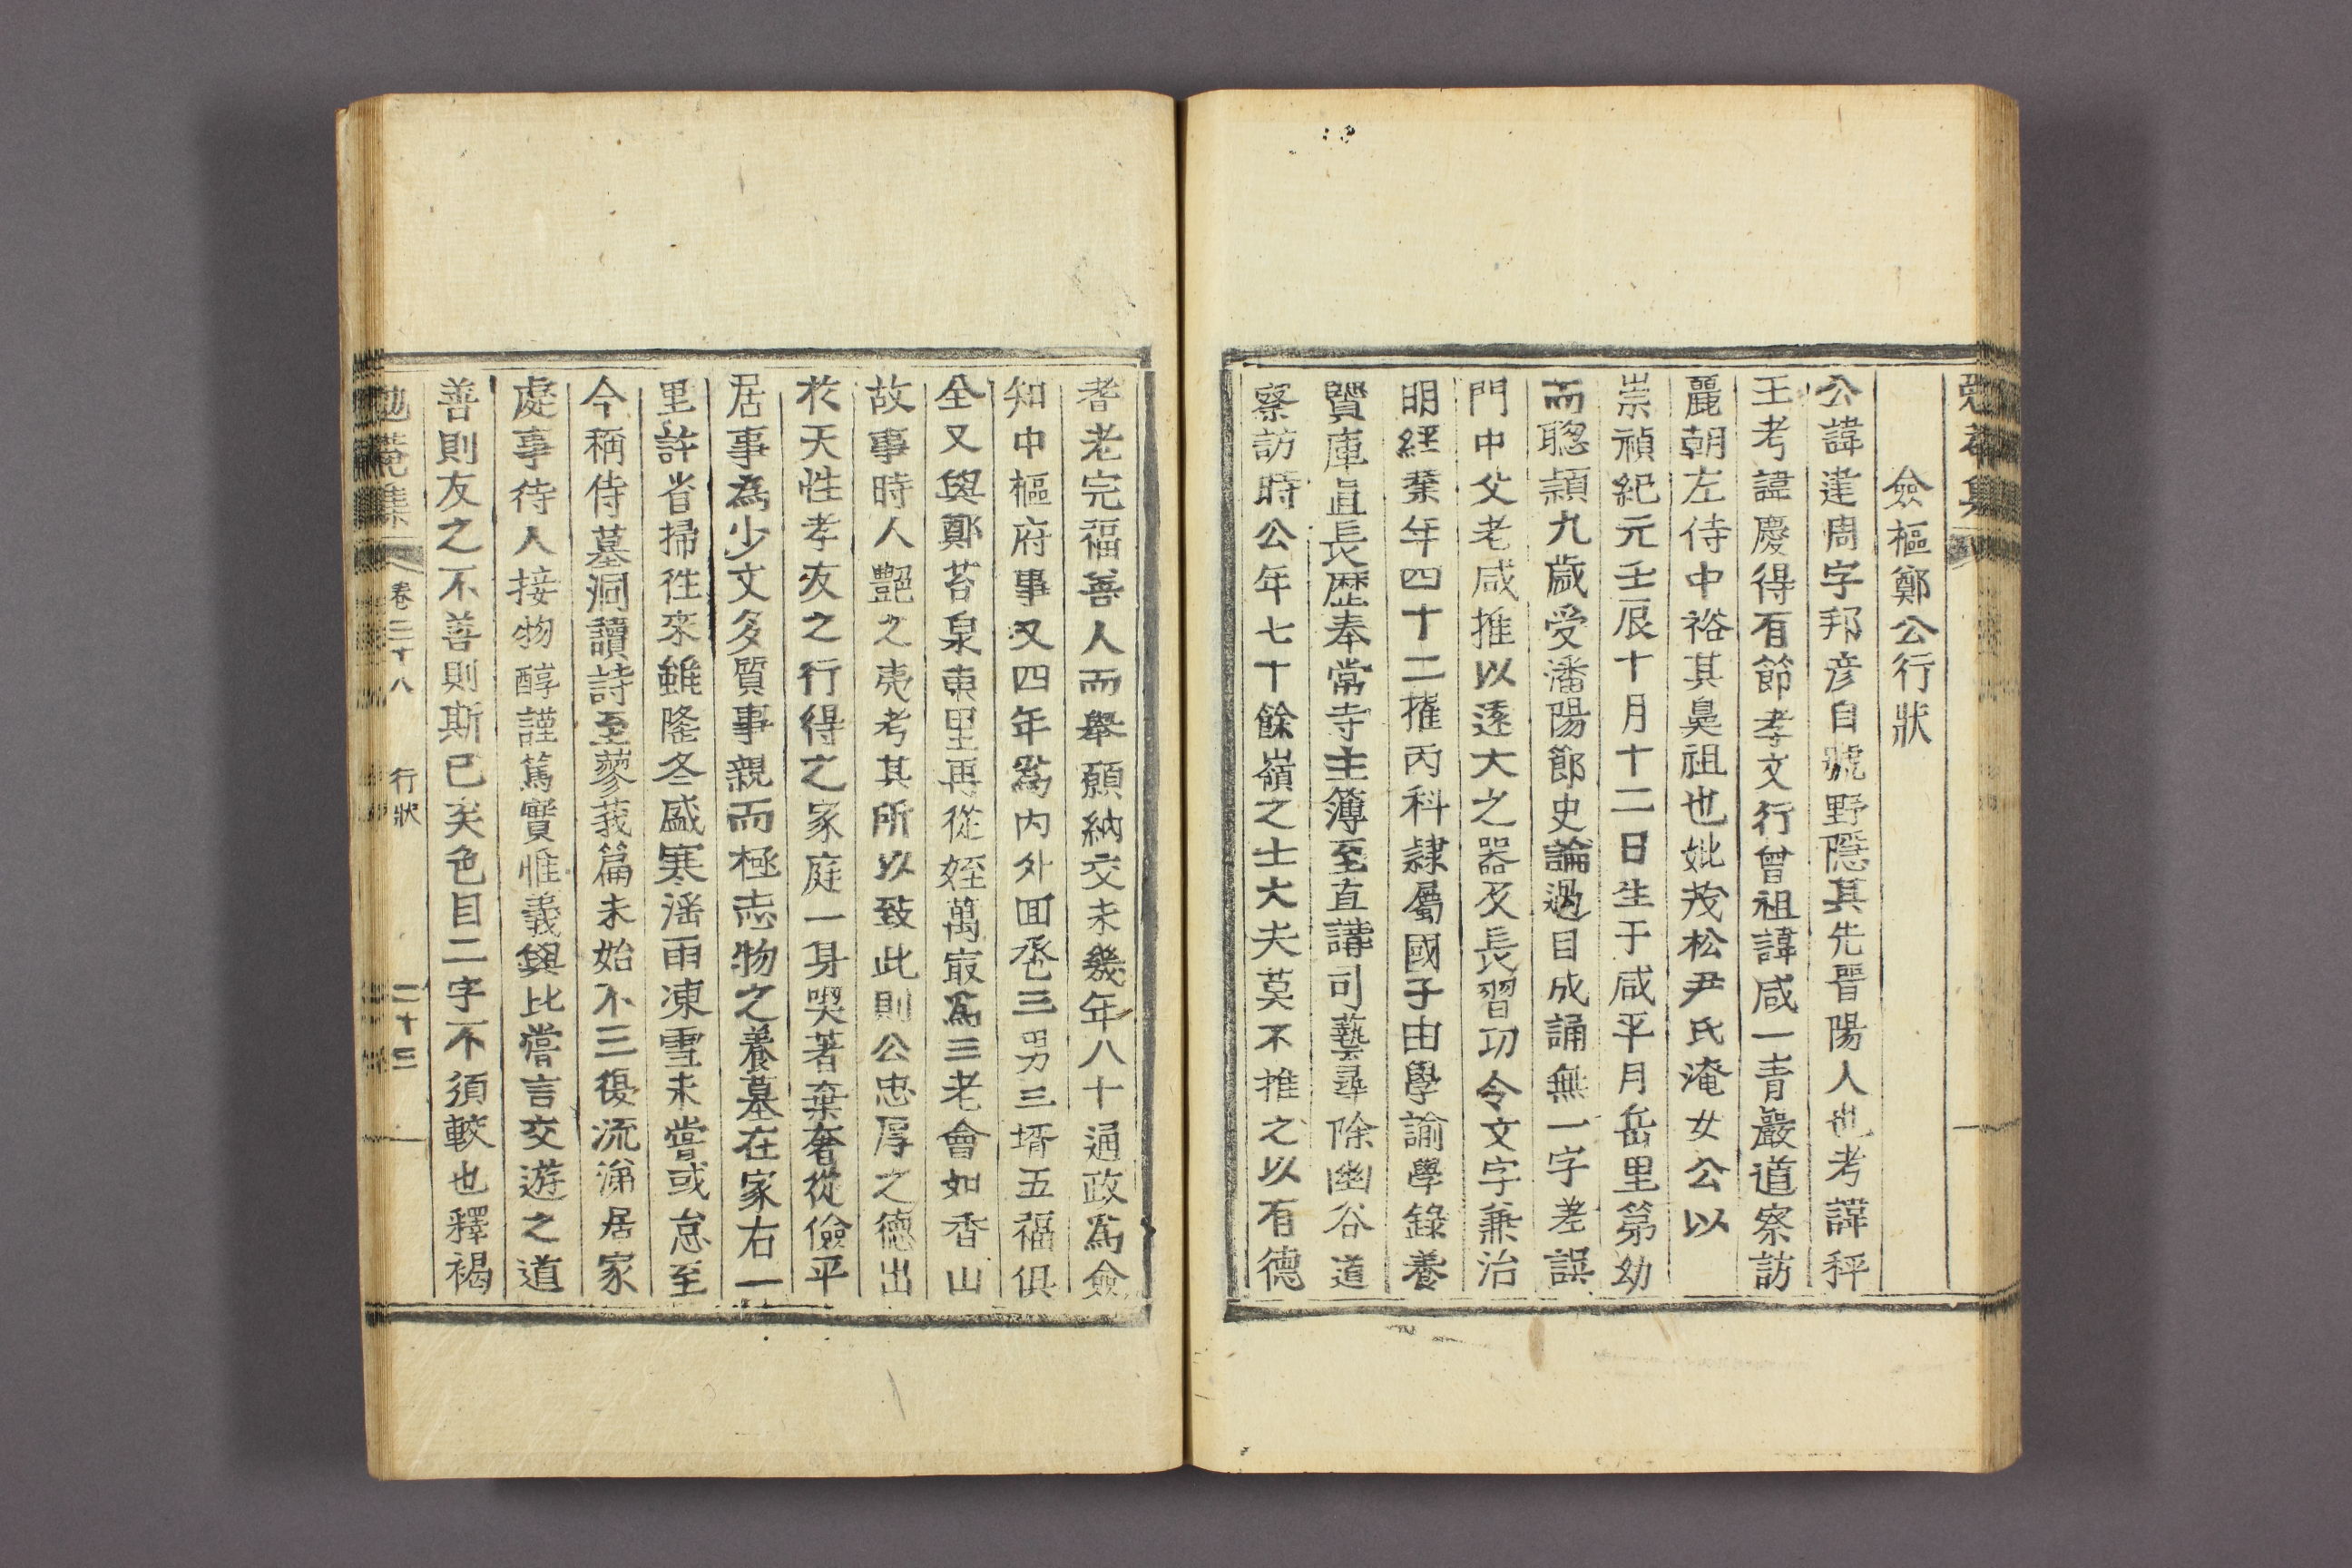 僉樞鄭公行狀
公諱達周字邦彦自號野隱其先晉陽人也考諱秤
王考諱慶得有節孝文行曾祖諱咸一青巖道察訪
麗朝左侍中裕其鼻祖也妣茂松尹氏淹女公以
崇禎紀元壬辰十月十二日生于咸平月岳里第幼
而聦頴九歲受潘陽節史論過目成誦無一字差誤
門中父老咸推以遠大之器及長習功令文字兼治
明經業年四十二擢丙科隸屬國子由學諭學錄養
賢庫直長歷奉常寺主簿至直講司藝尋除幽谷道
察訪時公年七十餘嶺之士大夫莫不推之以有德
耆老完福善人而舉願納交未幾年八十通政爲僉
知中樞府事又四年爲内外回巹三男三壻五福俱
全又與鄭苔泉東里再從姪萬㝡爲三老會如香山
故事時人艶之夷考其所以致此則公忠厚之德出
於天性孝友之行得之家庭一身哭著棄奢從儉平
居事爲少文多質事親而極志物之養墓在家右一
里許省掃徃來雖隆冬盛寒滛雨凍雪未嘗或怠至
今稱侍墓洞讀詩至蓼莪篇未始不三復流涕居家
處事待人接物醇謹篤實惟義與比嘗言交遊之道
善則友之不善則斯已矣色目二字不須較也釋褐
勉菴集 卷三十八 行狀 二十三